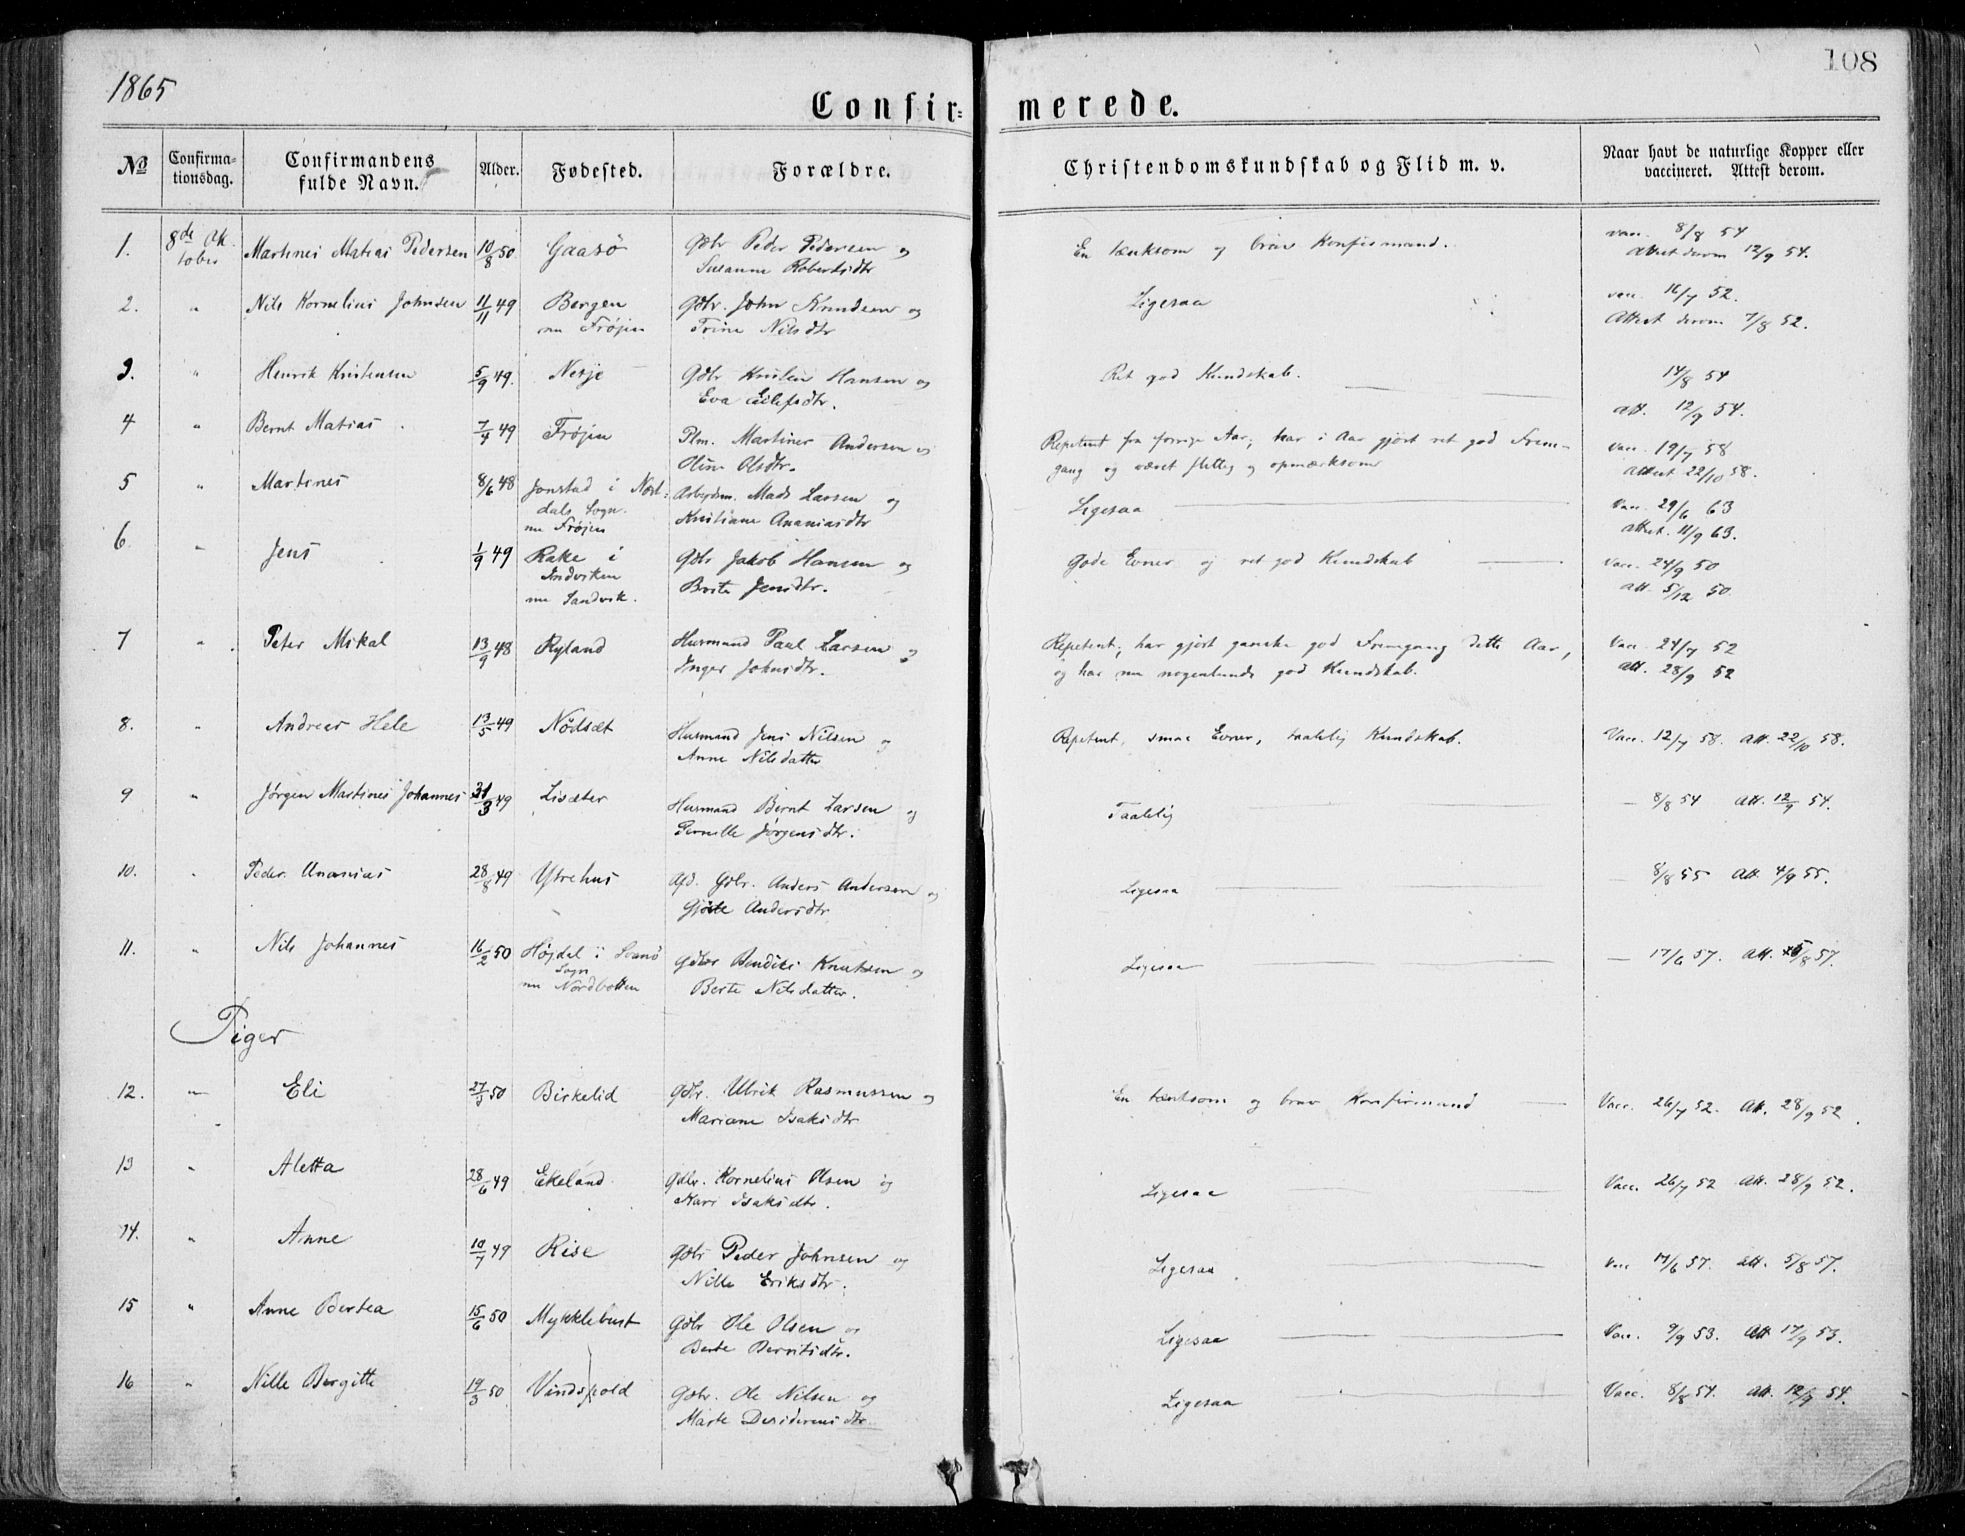 1865
108
Confir= merede.
№ Confirma-tionsdag. Confirmandens fulde Navn. Alder. Fødested. Forældre. Christendomskundskab og Flid m. v. Naar havt de naturlige Kopper eller vaccineret. Attest derom.
1. 8de Ok- Martines Matias Pedersen 10/8 50 Gaasö Gdbr Peder Pedersen og En tænksom og brav Konfirmand. vacc. 8/8 54
tober Susanne Robertsdtr Attest derom 12/9 54.
2. " Nils Kornelius Johnsen 11/11 49 Bergen Gdbr. John Knudsen og Ligesaa vacc. 16/7 52.
nu Fröjen Trine Nilsdtr Attest derom 7/8 52.
3. " Henrik Kristensen 5/9 49. Nesje Gdbr Kristen Hansen og Ret god Kundskab. 14/8 54
Eva Eilefsdtr. Att. 12/9 54.
4 " Bernt Matias 7/4 49 Fröjen Plm. Martines Andersen og Repetent fra forrige Aar; har i Aar gjört ret god Frem- Vacc. 19/7 58
Oline Olsdtr. gang og været flittig og opmærksom Attest 22/10 58.
5 " Martines 8/6 48 Jonstad i Nost- Arbejdsm. Mads Larsen og Ligesaa Vacc. 29/6 63
dals Sogn. Kristiane Ananiasdtr Attest. 11/9 63.
nu Fröjen
6 " Jens 1/9 49 Rake i Gdbr Jakob Hansen og Gode Evner og ret god Kundskab Vacc. 24/9 50
Indviken Brite Jensdtr. Att. 5/12 50
nu Sandvik.
7 " Peter Mikal 13/9 48 Ryland Husmand Paul Larsen og Repetent; har gjört ganske god Fremgang dette Aar, Vacc. 24/7 52
Inger Johnsdtr. og har nu nogenlunde god Kundskab. Att. 28/9 52
8. " Andreas Hele 13/5 49 Nödsæt Husmand Jens Nilsen og Repetent, smaa Evner, taalelig Kundskab. Vacc. 12/7 58. Att. 22/10 58.
Anne Nilsdatter
9 " Jörgen Martines Johannes 31/3 49 Lisæter Husmand Bernt Larsen og Taalelig — 8/8 54 Att. 12/9 54.
Pernille Jörgensdtr.
10. " Peder Ananias 28/8 49 Ytrehus Afd. Gdbr. Anders Andersen og Ligesaa — 8/8 55 Att. 4/9 55.
Gjöde Andersdtr
11. " Nils Johannes 16/2 50 Höjdal i Svanö Gdbr Bendiks Knutsen og Ligesaa — 17/6 57. Att. 5/8 57.
Sogn Berte Nilsdatter.
nu Nordbotten
Piger
12. " Eli 27/3 50 Birkelid Gdbr. Ulrik Rasmussen og En tænksom og brav Konfirmand Vacc. 26/7 52. Att. 28/9 52.
Mariane Isaksdtr
13 " Aletta 28/6 49 Ekeland Gdbr. Kornelius Olsen og Ligesaa Vacc. 26/7 52 Att. 28/9 52.
Mari Isaksdtr.
14. " Anne 10/7 49 Rise Gdbr Peder Johnsen og Ligesaa Vacc 17/6 57. Att. 5/8 57.
Nille Eriksdtr.
15 " Anne Bertea 15/6 50 Myklebust Gdbr Ole Olsen og Ligesaa Vacc. 9/9 53. Att 17/9 53.
Berte Berntsdtr.
16 " Nille Bergitte 19/3 50 Vindspold Gdbr. Ole Nilsen og Ligesaa Vacc. 8/8 54. Att. 12/9 54.
Marte Desideriusdtr.